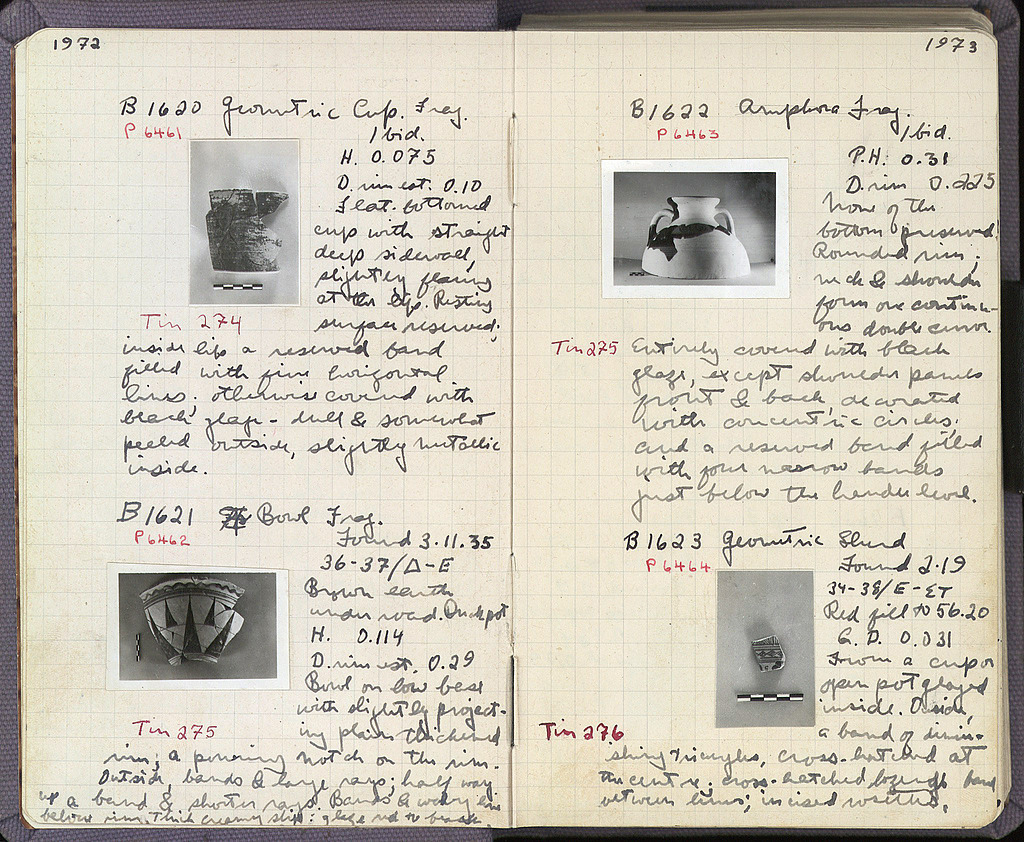 1972
B 1620 Geometric Cup. Frag.
P 6461
1 bid.
H. 0.075
D. rim est. 0.10
Flat-bottomed
cup with straight
deep sidewall,
slightly flaring
at the lip. Resting
surface reserved;
Tin 274
inside lip a reserved band
filled with five horizontal
lines; otherwise covered with
black glaze - dull & somewhat
peeled outside, slightly metallic
inside.
B 1621 Bowl Frag.
P 6462
Found 3.11.35
36-37/Δ-E
Brown earth
under road.
H. 0.114
D. rim est. 0.29
Bowl on low base
with slightly project-
ing plain thickened
Tin 275
rim; a pouring notch on the rim.
Outside, bands & large rays; half way
up a band & shorter rays. Bands & wavy line
below rim. Thick creamy slip; glaze red to
1973
B 1622 Amphora Frag.
P 6463
1 bid.
P.H. 0.31
D. rim 0.225
None of the
bottom preserved.
Rounded rim;
neck & shoulder
form one continu-
ous double curve.
Tin 275
Entirely covered with black
glaze, except shoulder panels
front & back, decorated
with concentric circles;
and a reserved band filled
with four narrow bands
just below the handle level.
B 1623 Geometric Sherd
P 6464
Found 2.19
34-38/E-ΣT
Red fill to 56.20
G. D. 0.031
From a cup or
open pot glazed
inside. Outside,
a band of dimin-
Tin 276
ishing triangles, cross-hatched at
the center. cross-hatched lozenge band
between lines; incised rosettes.